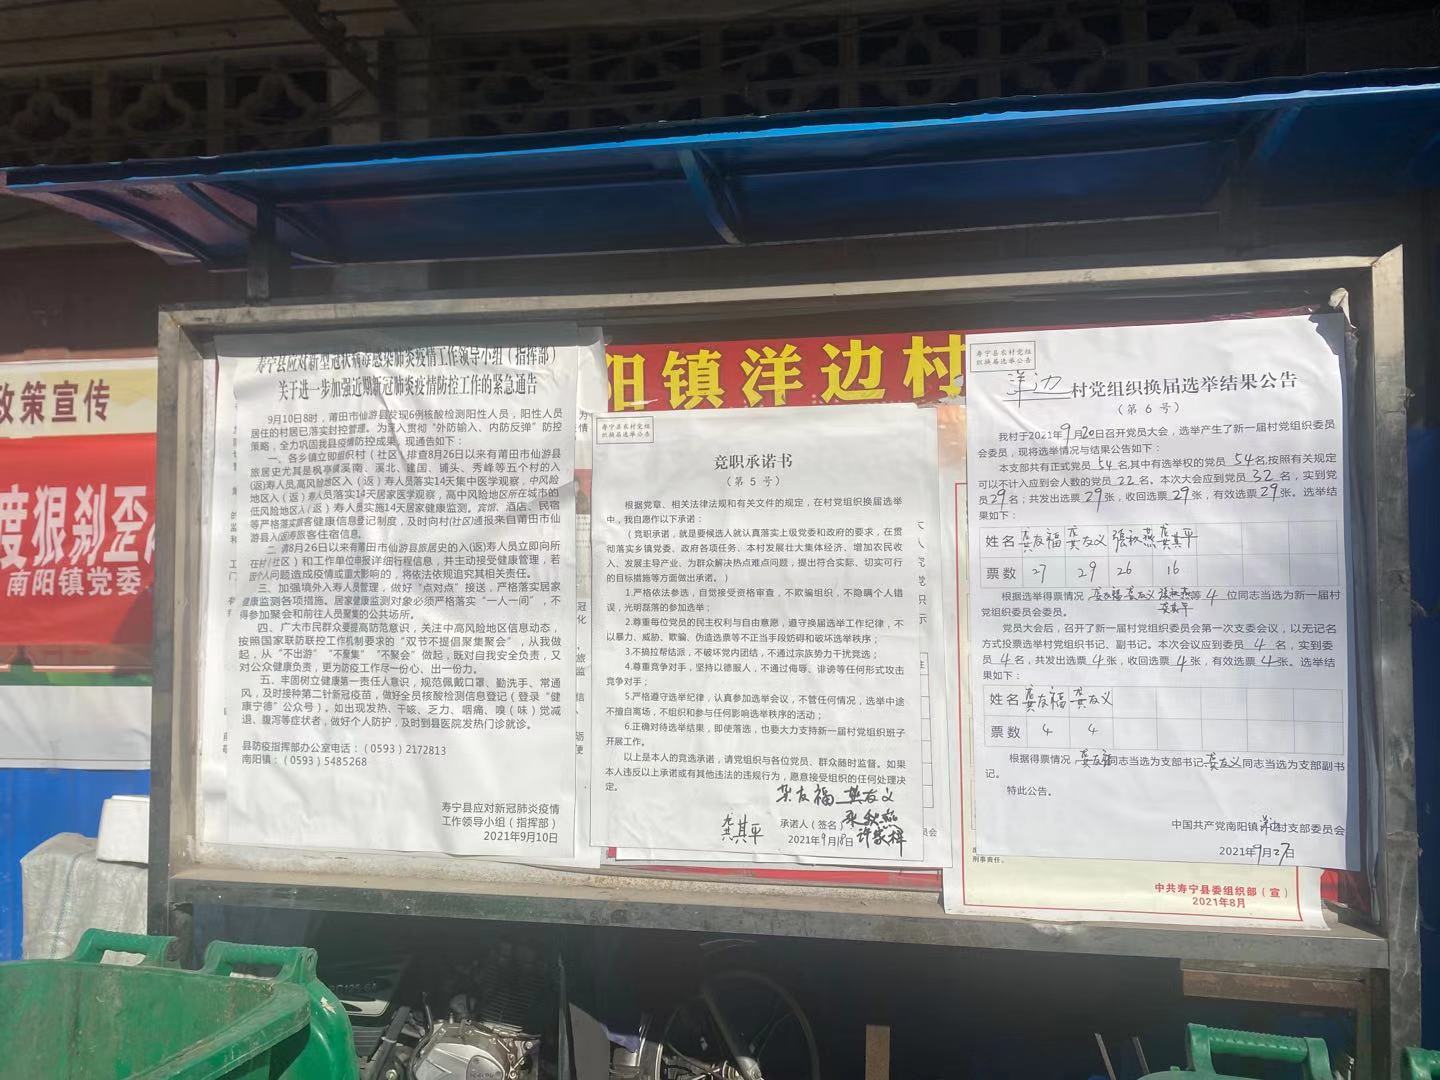 政策宣传
度狠刹歪
南阳镇党委
阳镇洋边村
寿宁县应对新型冠状病毒感染肺炎疫情工作领导小组（指挥部）
关于进一步加强近期新冠肺炎疫情防控工作的紧急通告
9月10日8时，莆田市仙游县发现6例核酸检测阳性人员，阳性人员
居住的村居已落实封控管理。为深入贯彻“外防输入、内防反弹”防控
策略，全力巩固我县疫情防控成果，现通告如下：
一、各乡镇立即组织村（社区）排查8月26日以来有莆田市仙游县
旅居史尤其是枫亭镇溪南、溪北、建国、铺头、秀峰等五个村的入
(返)寿人员,高风险地区入（返）寿人员落实14天集中医学观察，中风险
地区入（返）寿人员落实14天居家医学观察，高中风险地区所在城市的
低风险地区入（返）寿人员实施14天居家健康监测。宾馆、酒店、民宿
等严格落实旅客健康信息登记制度，及时向村(社区)通报来自莆田市仙
游县入(返)寿旅客住宿信息。
二、请8月26日以来有莆田市仙游县旅居史的入(返)寿人员立即向所
在村（社区）和工作单位申报详细行程信息，并主动接受健康管理，若
因个人问题造成疫情或重大影响的，将依法依规追究其相关责任。
三、加强境外入寿人员管理，做好“点对点”接送，严格落实居家
健康监测各项措施。居家健康监测对象必须严格落实“一人一间”，不
得参加聚会和前往人员聚集的公共场所。
四、广大市民群众要提高防范意识，关注中高风险地区信息动态，
按照国家联防联控工作机制要求的“双节不提倡聚集聚会”，从我做
起，从“不出游”“不聚集”“不聚会”做起，既对自我安全负责，又
对公众健康负责，更为防疫工作尽一份心、出一份力。
五、牢固树立健康第一责任人意识，规范佩戴口罩、勤洗手、常通
风，及时接种第二针新冠疫苗，做好全员核酸检测信息登记（登录“健
康宁德”公众号）。如出现发热、干咳、乏力、咽痛、嗅（味）觉减
退、腹泻等症状者，做好个人防护，及时到县医院发热门诊就诊。
县防疫指挥部办公室电话：（0593）2172813
南阳镇：（0593）5485268
寿宁县应对新冠肺炎疫情
工作领导小组（指挥部）
2021年9月10日
寿宁县农村党组
织换届选举公告
竞职承诺书
（第 5 号）
根据党章、相关法律法规和有关文件的规定，在村党组织换届选举
中，我自愿作以下承诺：
（竞职承诺，就是要候选人就认真落实上级党委和政府的要求，在贯
彻落实乡镇党委、政府各项任务、本村发展壮大集体经济、增加农民收
入、发展主导产业、为群众解决热点难点问题，提出符合实际、切实可行
的目标措施等方面做出承诺。）
1.严格依法参选，自觉接受资格审查，不欺骗组织，不隐瞒个人错
误，光明磊落的参加选举；
2.尊重每位党员的民主权利与自由意愿，遵守换届选举工作纪律，不
以暴力、威胁、欺骗、伪造选票等不正当手段妨碍和破坏选举秩序；
3.不搞拉帮结派，不破坏党内团结，不通过宗族势力干扰竞选；
4.尊重竞争对手，坚持以德服人，不通过侮辱、诽谤等任何形式攻击
竞争对手；
5.严格遵守选举纪律，认真参加选举会议，不管任何情况，选举中途
不擅自离场，不组织和参与任何影响选举秩序的活动；
6.正确对待选举结果，即使落选，也要大力支持新一届村党组织班子
开展工作。
以上是本人的竞选承诺，请党组织与各位党员、群众随时监督。如果
本人违反以上承诺或有其他违法的违规行为，愿意接受组织的任何处理决
定。
龚友福 龚友义
龚其平 承诺人（签名）：张秋燕
2021年9月18日
寿宁县农村党组
织换届选举公告
洋边村党组织换届选举结果公告
（第 6 号）
我村于2021年9月20日召开党员大会，选举产生了新一届村党组织委员
会委员，现将选举情况与结果公告如下：
本支部共有正式党员54名,其中有选举权的党员54名,按照有关规定
可以不计入应到会人数的党员22名。本次大会应到党员32名，实到党
员29名；共发出选票29张，收回选票29张，有效选票29张。选举结
果如下：
姓名 龚友福 龚友义 张秋燕 龚其平
票数 27 29 26 16
根据选举得票情况，龚友福 龚友义 张秋燕 龚其平等4位同志当选为新一届村
党组织委员会委员。
党员大会后，召开了新一届村党组织委员会第一次支委会议，以无记名
方式投票选举村党组织书记、副书记。本次会议应到委员4名，实到委
员4名，共发出选票4张，收回选票4张，有效选票4张。选举结
果如下：
姓名 龚友福 龚友义
票数 4 4
根据得票情况，龚友福同志当选为支部书记，龚友义同志当选为支部副书
记。
特此公告。
中国共产党南阳镇洋边村支部委员会
2021年9月27日
刑事责任。
中共寿宁县委组织部（宣）
2021年8月